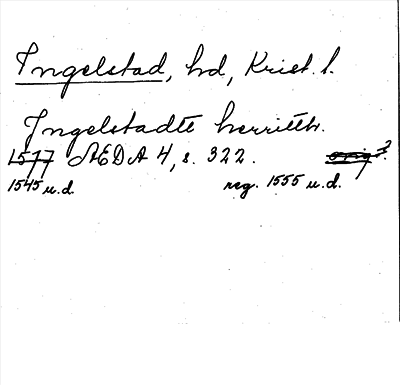 Ingelstad, hd, Krist. l.
Ingelstadte herritth.
1577 AEDA 4, s. 322. orig?
1545 u.d. reg. 1555 u.d.